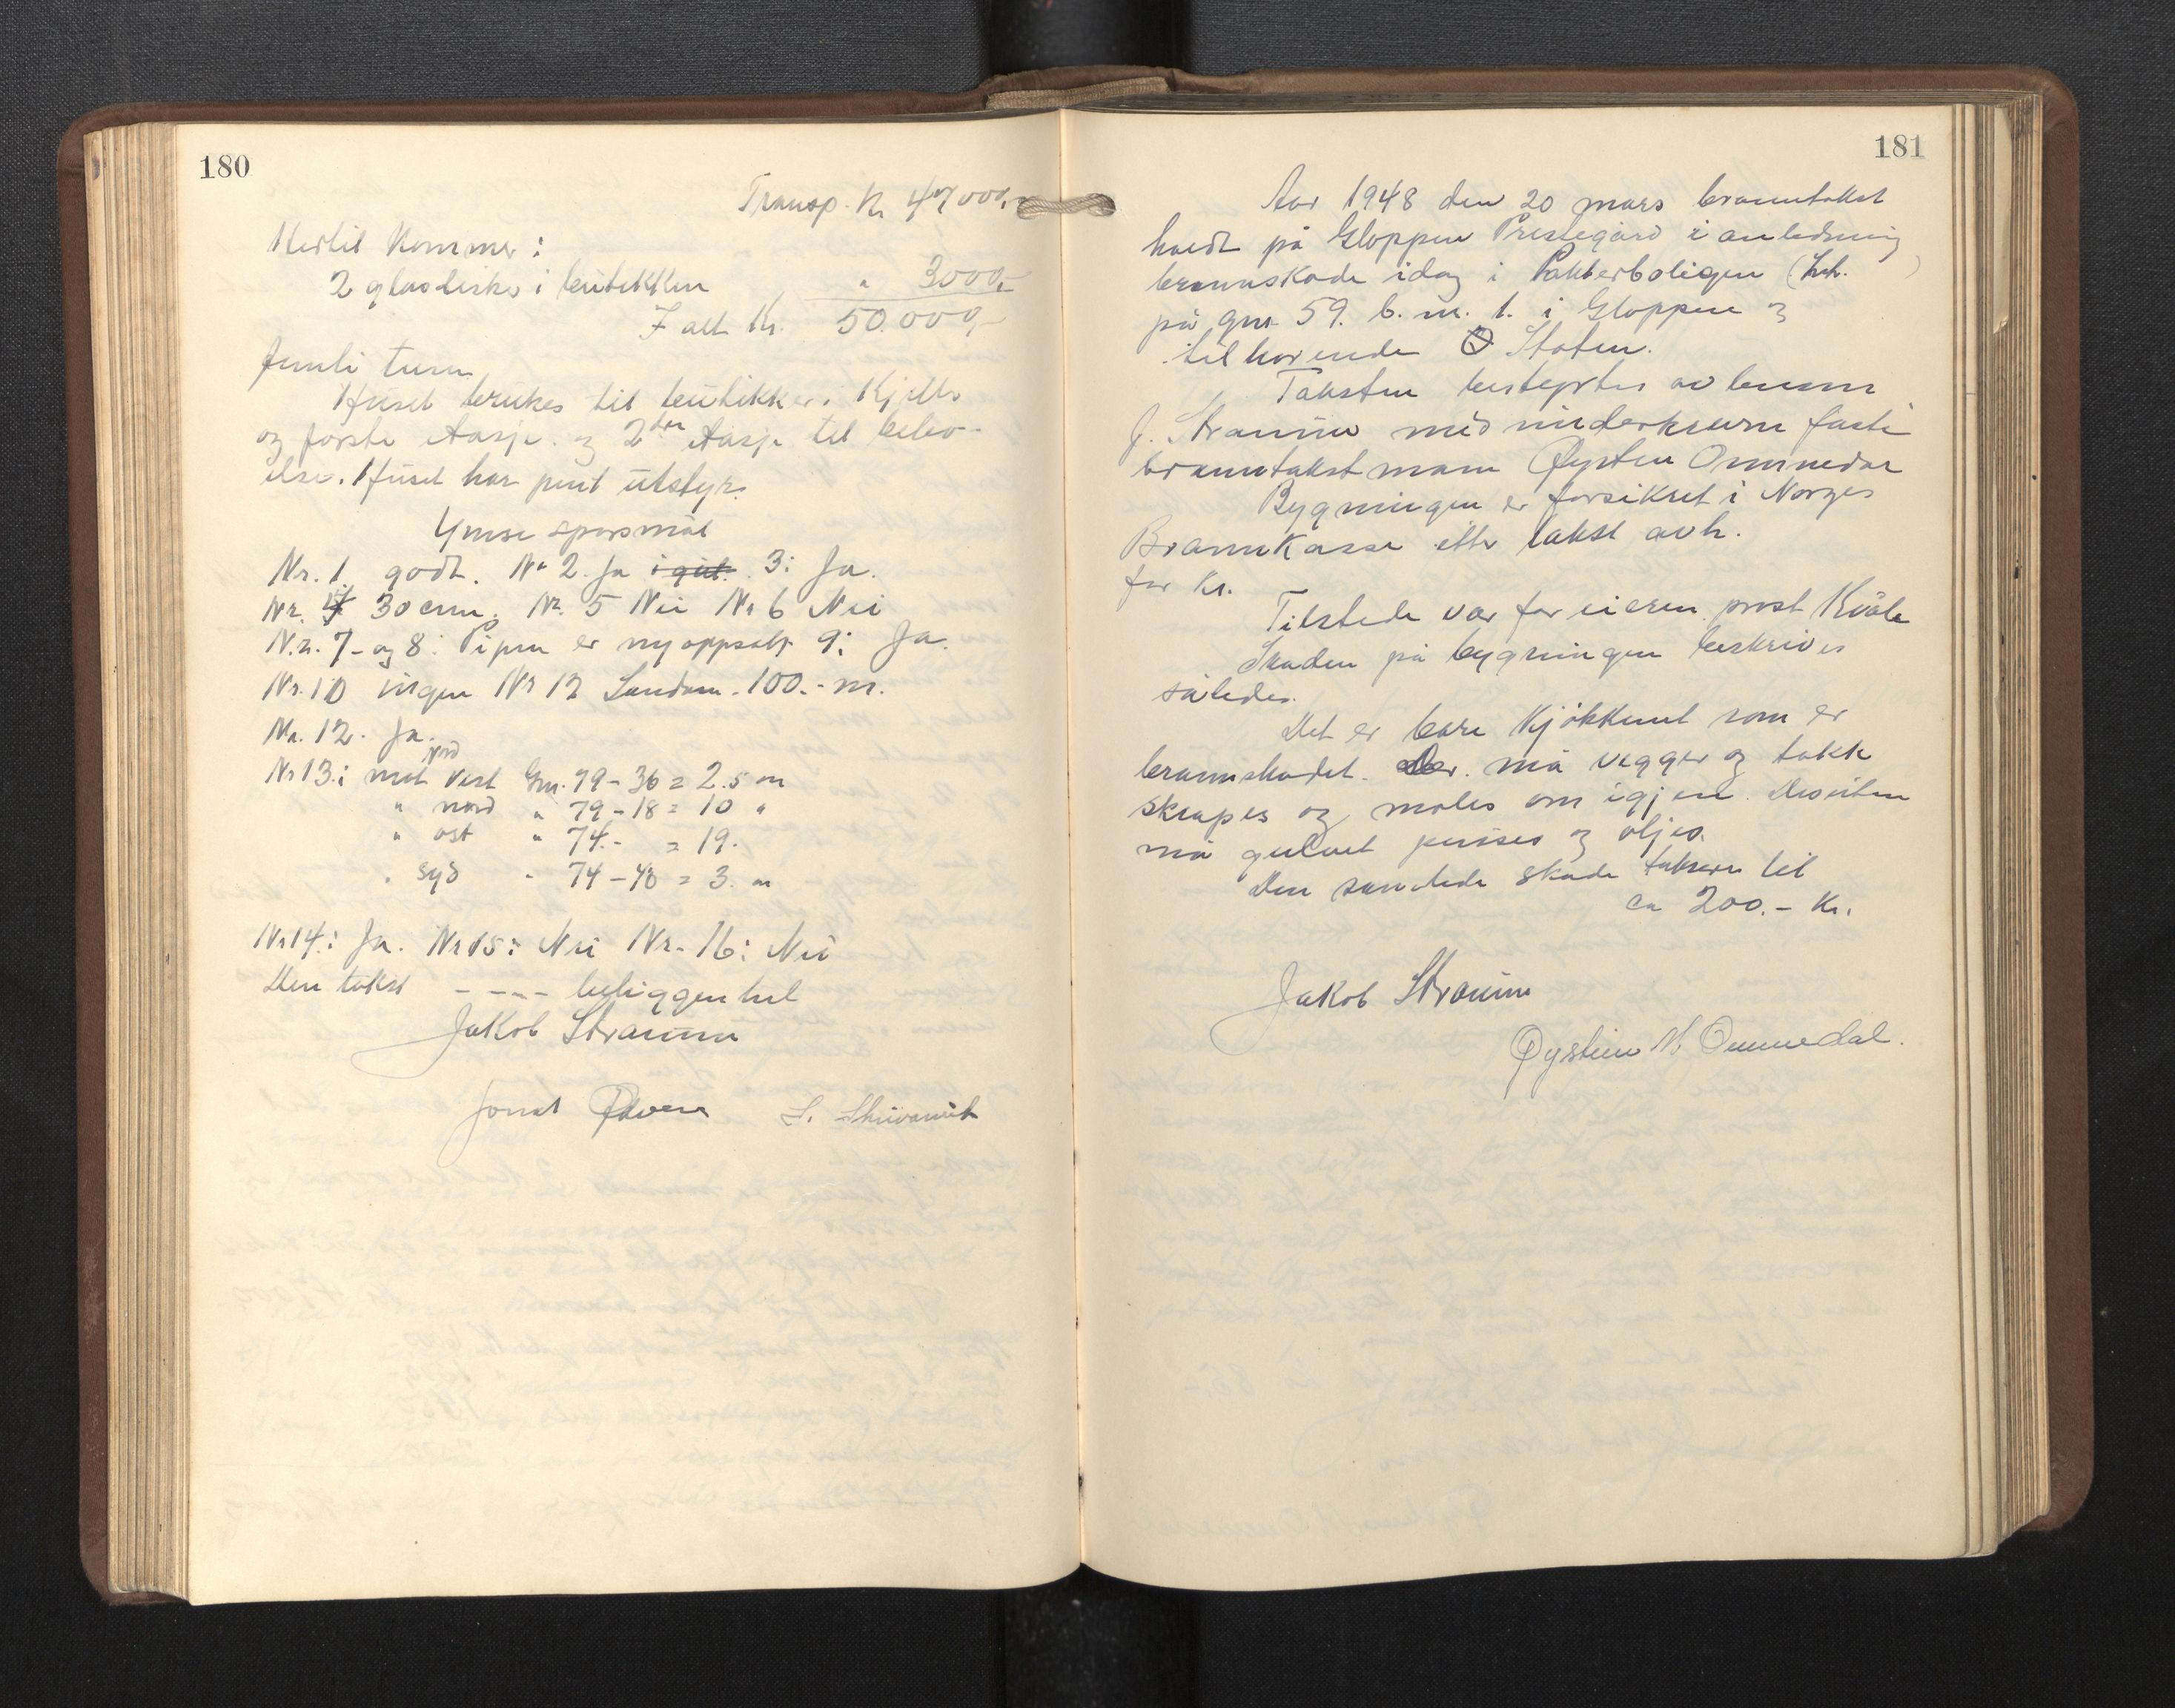 180
Transp. Kr 47000,-
Hertil kommer:
2 glasdisker i butikken " 3000,-
I alt Kr. 50.000,-
femti tusen
Huset brukes til butikker i Kjeller
og første Etasje. og 2den Etasje til bebo-
else. Huset har pent utstyr.
Ymse spørsmål
Nr. 1. godt. Nr 2. Ja 3: Ja.
Nr. 4 30 cm. Nr. 5 Nei Nr 6 Nei
Nr. 7- og 8: Pipen er ny oppsatt 9: Ja.
Nr. 10 ingen Nr 12 Sandane. 100.- m.
Nr. 12. Ja.
Nr 13: mot nord vest Gnr. 79-36 = 2.5 m
" nord " 79-18 = 10 "
" øst " 74.- = 19.
" syd " 74-40 = 3. m
Nr 14: Ja. Nr 15: Nei Nr. 16: Nei
Den takst ---- beliggenhet
Jakob Straume
Jonat
181
Aar 1948 den 20 mars branntakst
holdt på Gloppen Prestegård i anledning
brannskade idag i Pakterboligen (Lnh. )
på gnr. 59. b.nr. 1. i Gloppen og
tilhørende Staten.
Taksten bestyrtes av lensm
J. Straume med underskrevne faste
branntakstmann Øystein Ommedal
Bygningen er forsikret i Norges
Brannkasse etter takst avh.
for kr.
Tilstede var for eieren prost Kvåle
Skaden på bygningen beskrives
således.
Det er bare kjøkkenet som er
brannskadet. Der må vegger og takk
skrapes og males om igjen. Desuten
må gulvet pusses og oljes.
Den samlede skade takseres til
ca 200.- kr.
Jakob Straume
Øystein M Ommedal.